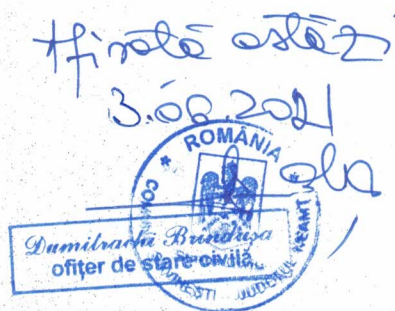 Afișată astăzi
3.06.2021
ROMÂNIA
JUDEȚUL NEAMȚ
Dumitrachi Brîndușa
ofițer de stare civilă